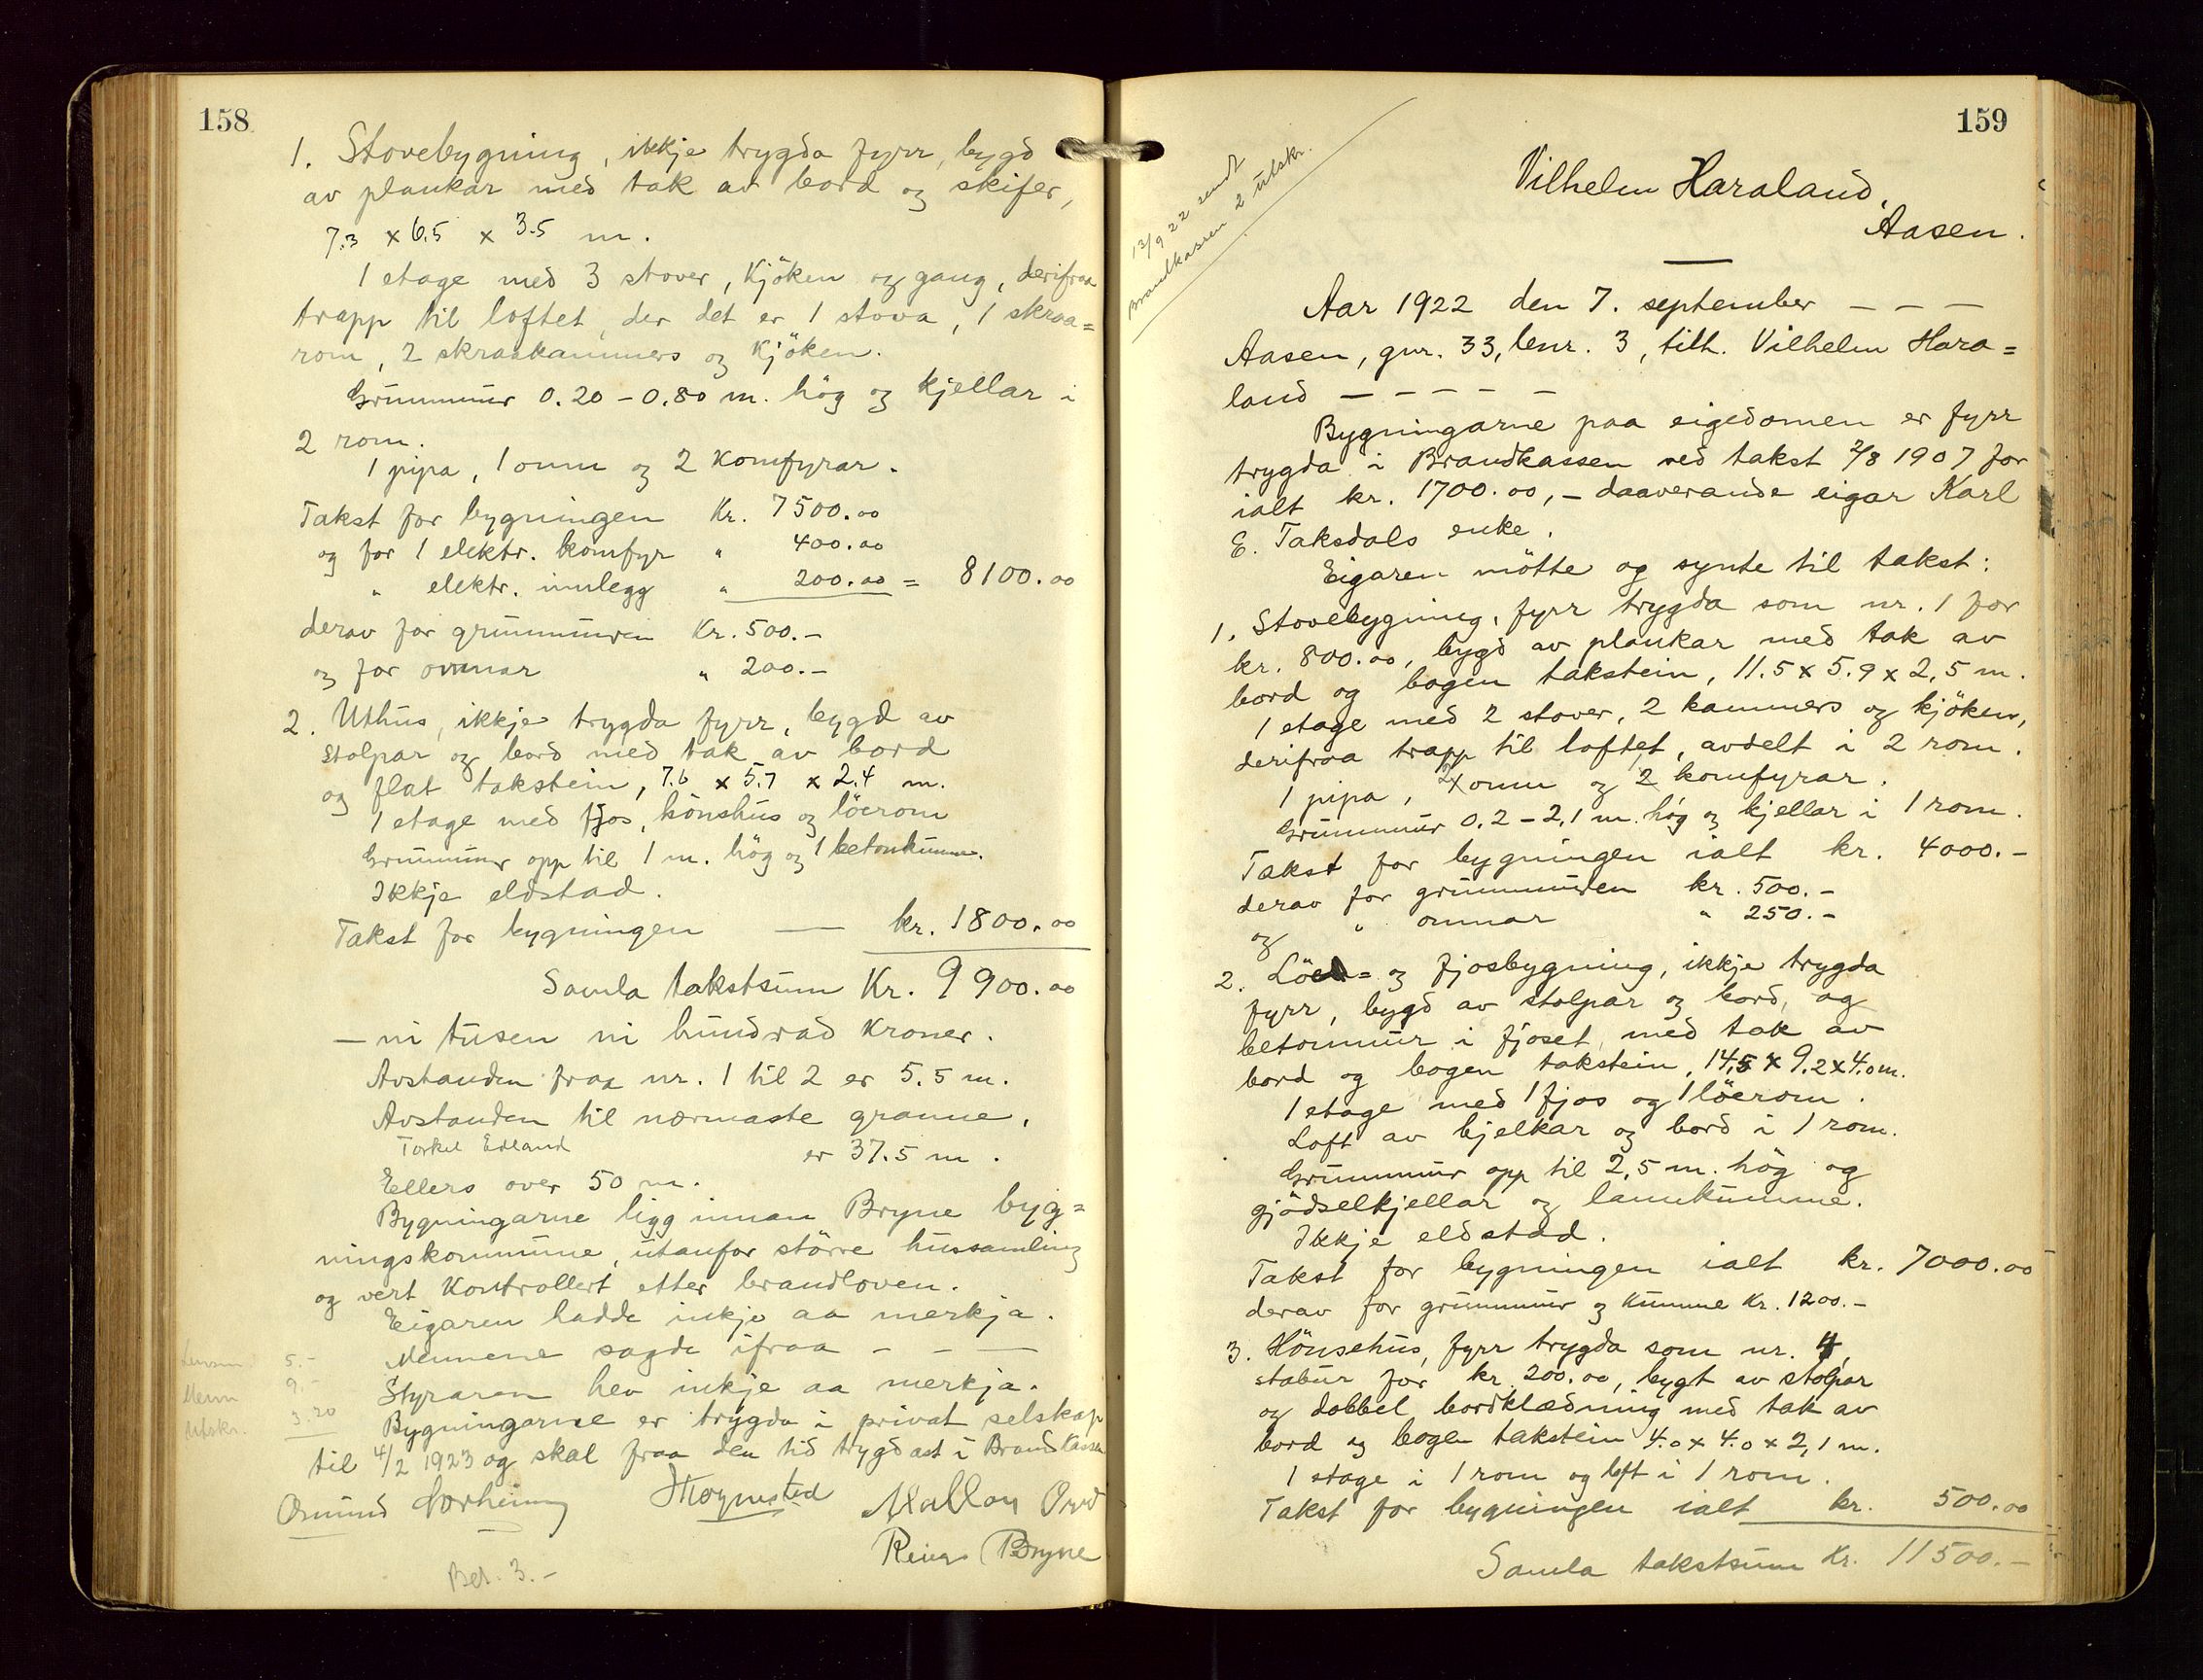 158
1. Stovebygning, ikkje trygda fyrr, bygd
av plankar med tak av bord og skifer,
7.3 x 6.5 x 3.5 m.
1 etage med 3 stover, kjöken og gang, derifraa
trapp til loftet, der det er 1 stova, 1 skraa=
rom, 2 skraakammers og kjöken.
Grunnmur 0.20 - 0.80 m. hög og kjellar i
2 rom.
1 pipa, 1 omn og 2 komfyrar.
Takst for bygningen Kr. 7500.00
og for 1 elektr. komfyr " 400.00
" elektr. innlegg " 200.00 = 8100.00
derav for grunnmuren Kr. 500.-
og for omnar " 200.-
2. Uthus, ikkje trygda fyrr, bygd av
stolpar og bord med tak av bord
og flat takstein, 7.6 x 5.7 x 2.4 m.
1 etage med fjos, hönshus og löerom
Grunnmur opp til 1 m. hög og 1 betonkumme.
Ikkje eldstad.
Takst for bygningen — kr. 1800.00
Samla takstsum Kr. 9900.00
— ni tusen ni hundrad kroner.
Avstanden fraa nr. 1 til 2 er 5.5 m.
Avstanden til nærmaste granne,
Torkel Edland er 37.5 m.
Ellers over 50 m.
Bygningarne ligg innan Bryne byg=
ningskommune, utanfor större hussamling
og vert kontrollert etter brandloven.
Eigaren hadde inkje aa merkja.
Mennene sagde ifraa - - —
Lensm. 5.-
Menn 9.-
Utskr. 3.20
Styraren hev inkje aa merkja.
Bygningarne er trygda i privat selskap
til 4/2 1923 og skal fraa den tid trygdast i Brandkassen
Osmund Norheim
Reier Bryne
Bet. 3.-
159
13/9 22 sendt
Brandkassen 2 utskr.
Vilhelm Haraland,
Aasen.
—
Aar 1922 den 7. september - - -
Aasen, gnr. 33, bnr. 3, tilh. Vilhelm Hara=
land - - - - -
Bygningarne paa eigedomen er fyrr
trygda i Brandkassen ved takst 2/8 1907 for
ialt kr. 1700.00, - daaverande eigar Karl
E. Taksdals enke.
Eigaren mötte og synte til takst:
1. Stovebygning, fyrr trygda som nr. 1 for
kr. 800.00, bygd av plankar med tak av
bord og bogen takstein, 11.5 x 5.9 x 2,5 m.
1 etage med 2 stover, 2 kammers og kjöken,
derifraa trapp til loftet, avdelt i 2 rom.
1 pipa, 2 omn og 2 komfyrar.
Grunnmur 0.2 - 2,1 m. hög og kjellar i 1 rom.
Takst for bygningen ialt kr. 4000.-
derav for grunnmuren kr. 500.-
og " omnar " 250.-
2. Löe= og fjosbygning, ikkje trygda
fyrr, bygd av stolpar og bord, og
betonmur i fjoset, med tak av
bord og bogen takstein, 14,5 x 9.2 x 4.0 m.
1 etage med 1 fjos og 1 löerom.
Loft av bjelkar og bord i 1 rom.
Grunnmur opp til 2,5 m. hög og
gjödselkjellar og lannkumme.
Ikkje eldstad.
Takst for bygningen ialt kr. 7000.00
derav for grunnmur og kumme Kr. 1200.-
3. Hönsehus, fyrr trygda som nr. 4,
stabur for kr. 200.00, bygt av stolpar
og dobbel bordklædning med tak av
bord og bogen takstein 4.0 x 4.0 x 2,1 m.
1 etage i 1 rom og loft i 1 rom.
Takst for bygningen ialt kr. 500.00
Samla takstsum Kr. 11500.-